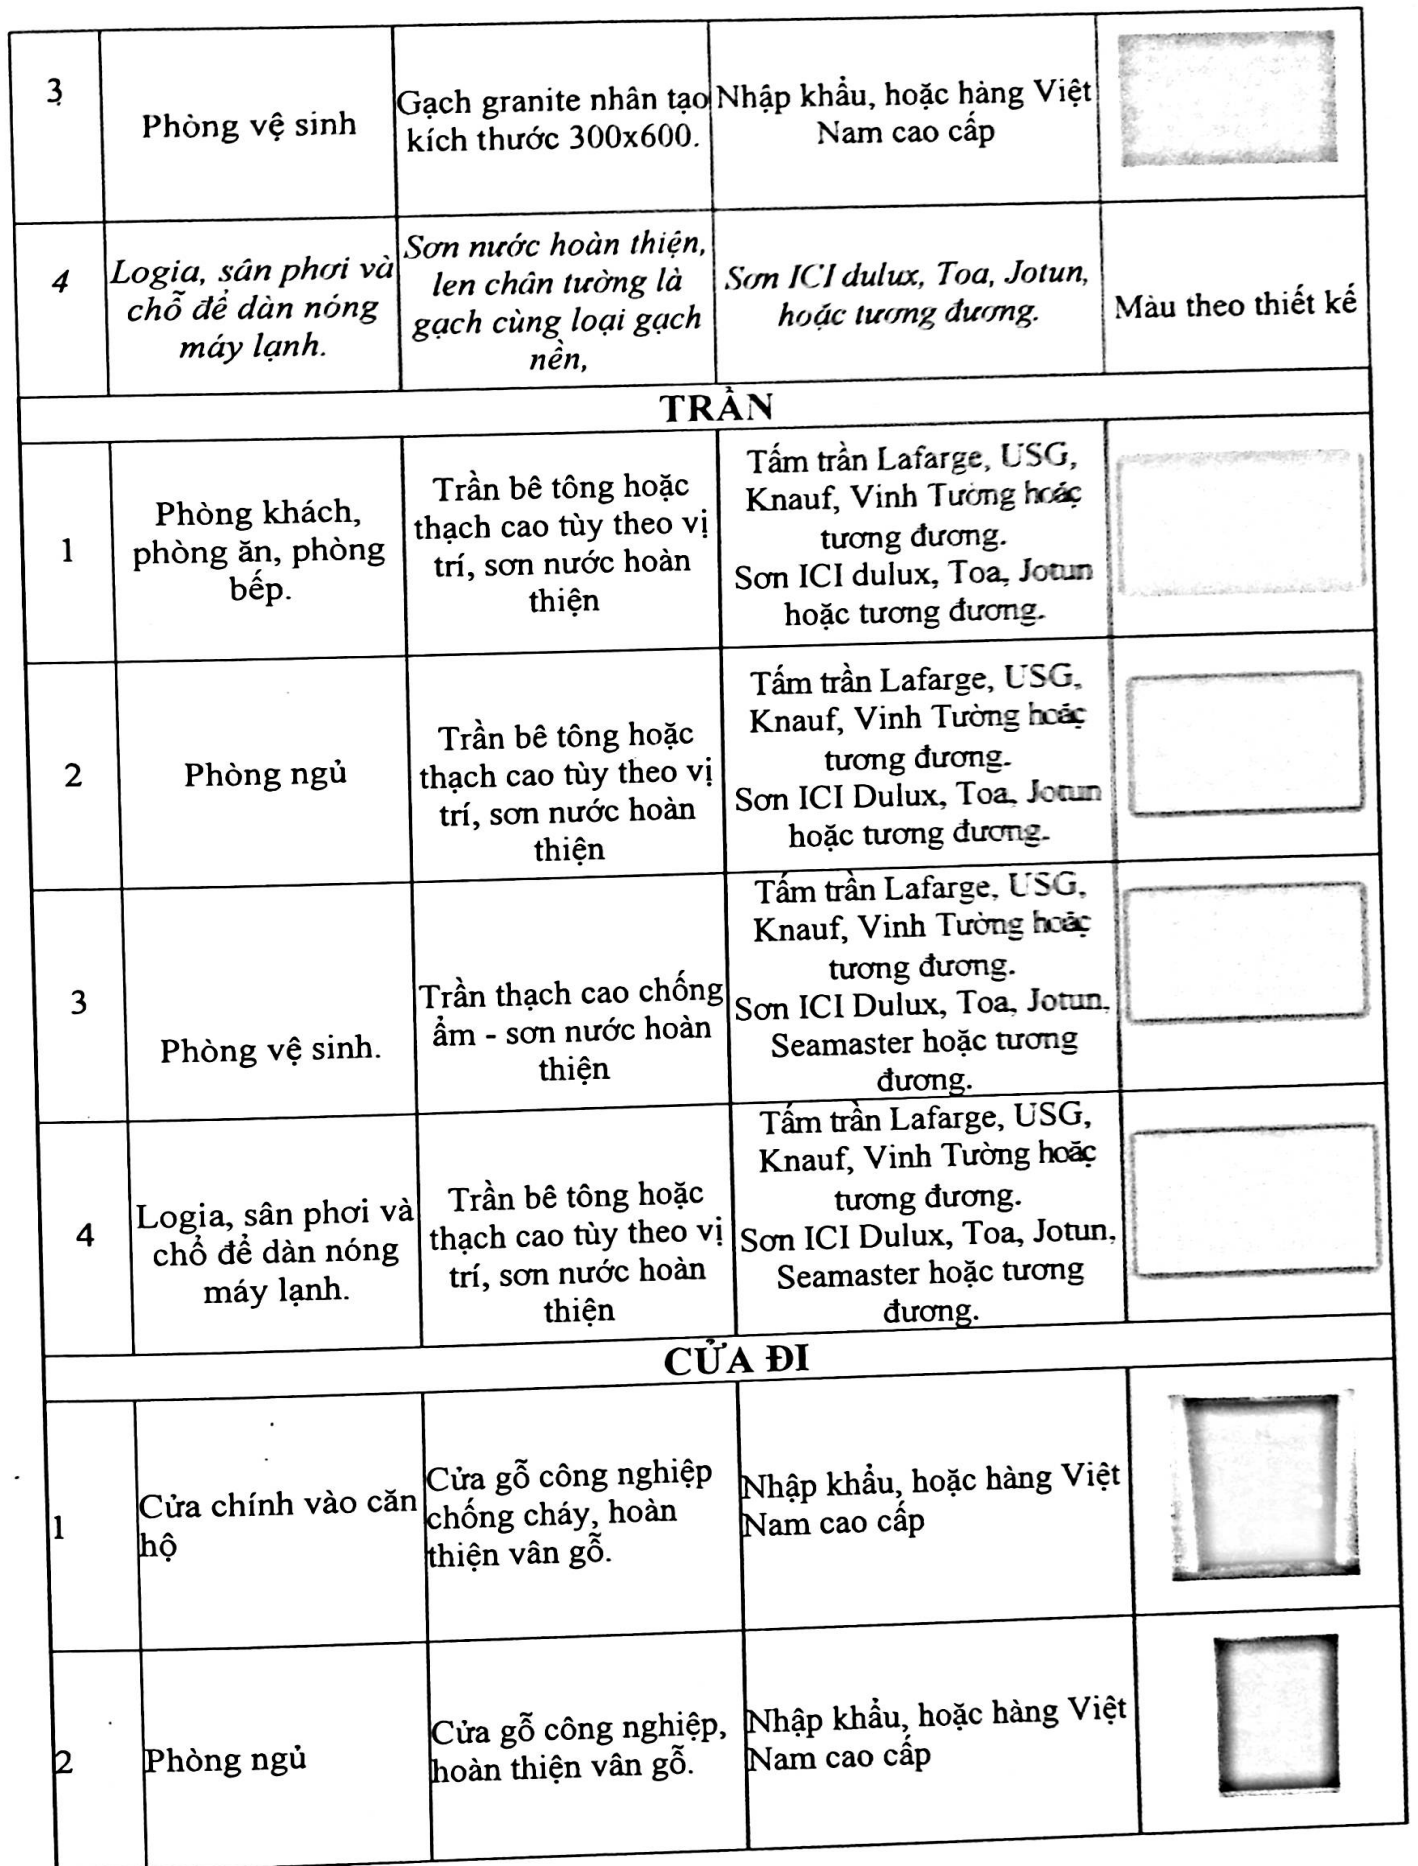 3
Phòng vệ sinh
Gạch granite nhân tạo
kích thước 300x600.
Nhập khẩu, hoặc hàng Việt
Nam cao cấp
4
Logia, sân phơi và
chỗ để dàn nóng
máy lạnh.
Sơn nước hoàn thiện,
len chân tường là
gạch cùng loại gạch
nền,
Sơn ICI dulux, Toa, Jotun,
hoặc tương đương.
Màu theo thiết kế
TRẦN
1
Phòng khách,
phòng ăn, phòng
bếp.
Trần bê tông hoặc
thạch cao tùy theo vị
trí, sơn nước hoàn
thiện
Tấm trần Lafarge, USG,
Knauf, Vinh Tường hoặc
tương đương.
Sơn ICI dulux, Toa, Jotun
hoặc tương đương.
2
Phòng ngủ
Trần bê tông hoặc
thạch cao tùy theo vị
trí, sơn nước hoàn
thiện
Tấm trần Lafarge, USG,
Knauf, Vinh Tường hoặc
tương đương.
Sơn ICI Dulux, Toa, Jotun
hoặc tương đương.
3
Phòng vệ sinh.
Trần thạch cao chống
ẩm - sơn nước hoàn
thiện
Tấm trần Lafarge, USG,
Knauf, Vinh Tường hoặc
tương đương.
Sơn ICI Dulux, Toa, Jotun,
Seamaster hoặc tương
đương.
4
Logia, sân phơi và
chổ để dàn nóng
máy lạnh.
Trần bê tông hoặc
thạch cao tùy theo vị
trí, sơn nước hoàn
thiện
Tấm trần Lafarge, USG,
Knauf, Vinh Tường hoặc
tương đương.
Sơn ICI Dulux, Toa, Jotun,
Seamaster hoặc tương
đương.
CỬA ĐI
1
Cửa chính vào căn
hộ
Cửa gỗ công nghiệp
chống cháy, hoàn
thiện vân gỗ.
Nhập khẩu, hoặc hàng Việt
Nam cao cấp
2
Phòng ngủ
Cửa gỗ công nghiệp,
hoàn thiện vân gỗ.
Nhập khẩu, hoặc hàng Việt
Nam cao cấp